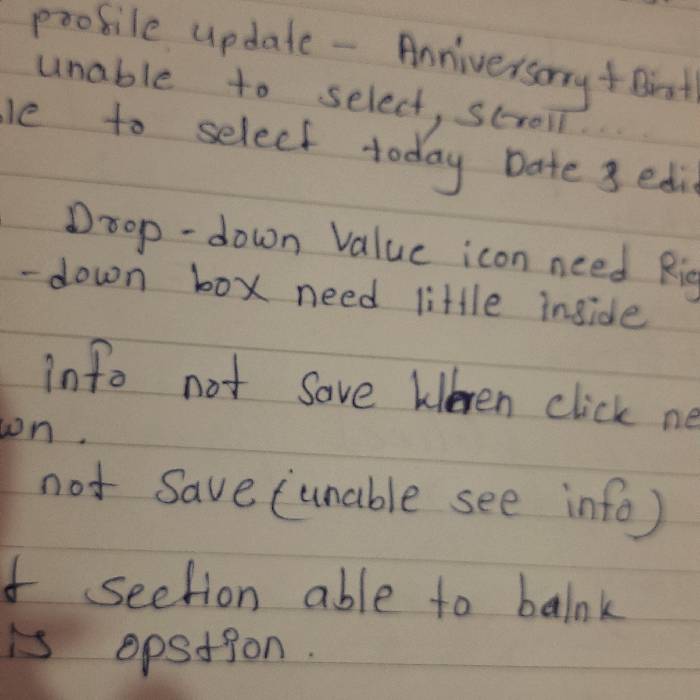 profile update - Anniversorry + Birth
unable to select, scroll....
le to select today Date & edit
Drop-down Value icon need Rig
-down box need little inside
info not save when click ne
wn.
not save (unable see info)
t section able to balnk
is opstion.